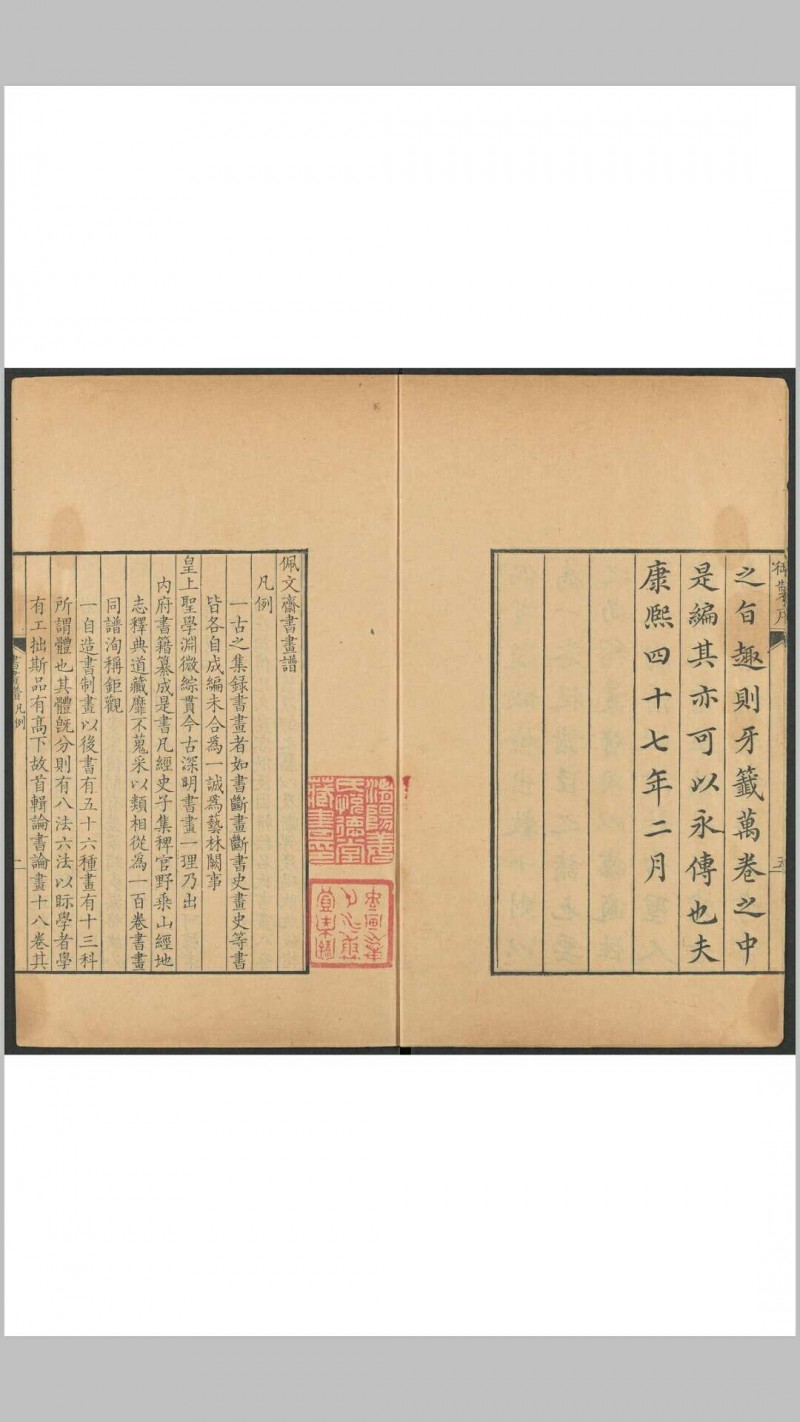 之旨趣則牙籤萬卷之中
是編其亦可以永傳也夫
康熙四十七年二月
佩文齋書畫譜
凡例
一古之集録書畫者如書斷畫斷書史畫史等書
皆各自成編未合為一誠為藝林闕事
皇上聖學淵微綜貫今古深明書畫一理乃出
内府書籍纂成是書凡經史子集稗官野乗山經地
志釋典道藏靡不蒐采以類相從為一百卷書畫
同譜洵稱鉅觀
一自造書制畫以後書有五十六種畫有十三科
所謂體也其體旣分則有八法六法以眎學者學
有工拙斯品有髙下故首輯論書論畫十八卷其
書畫譜凡例
一